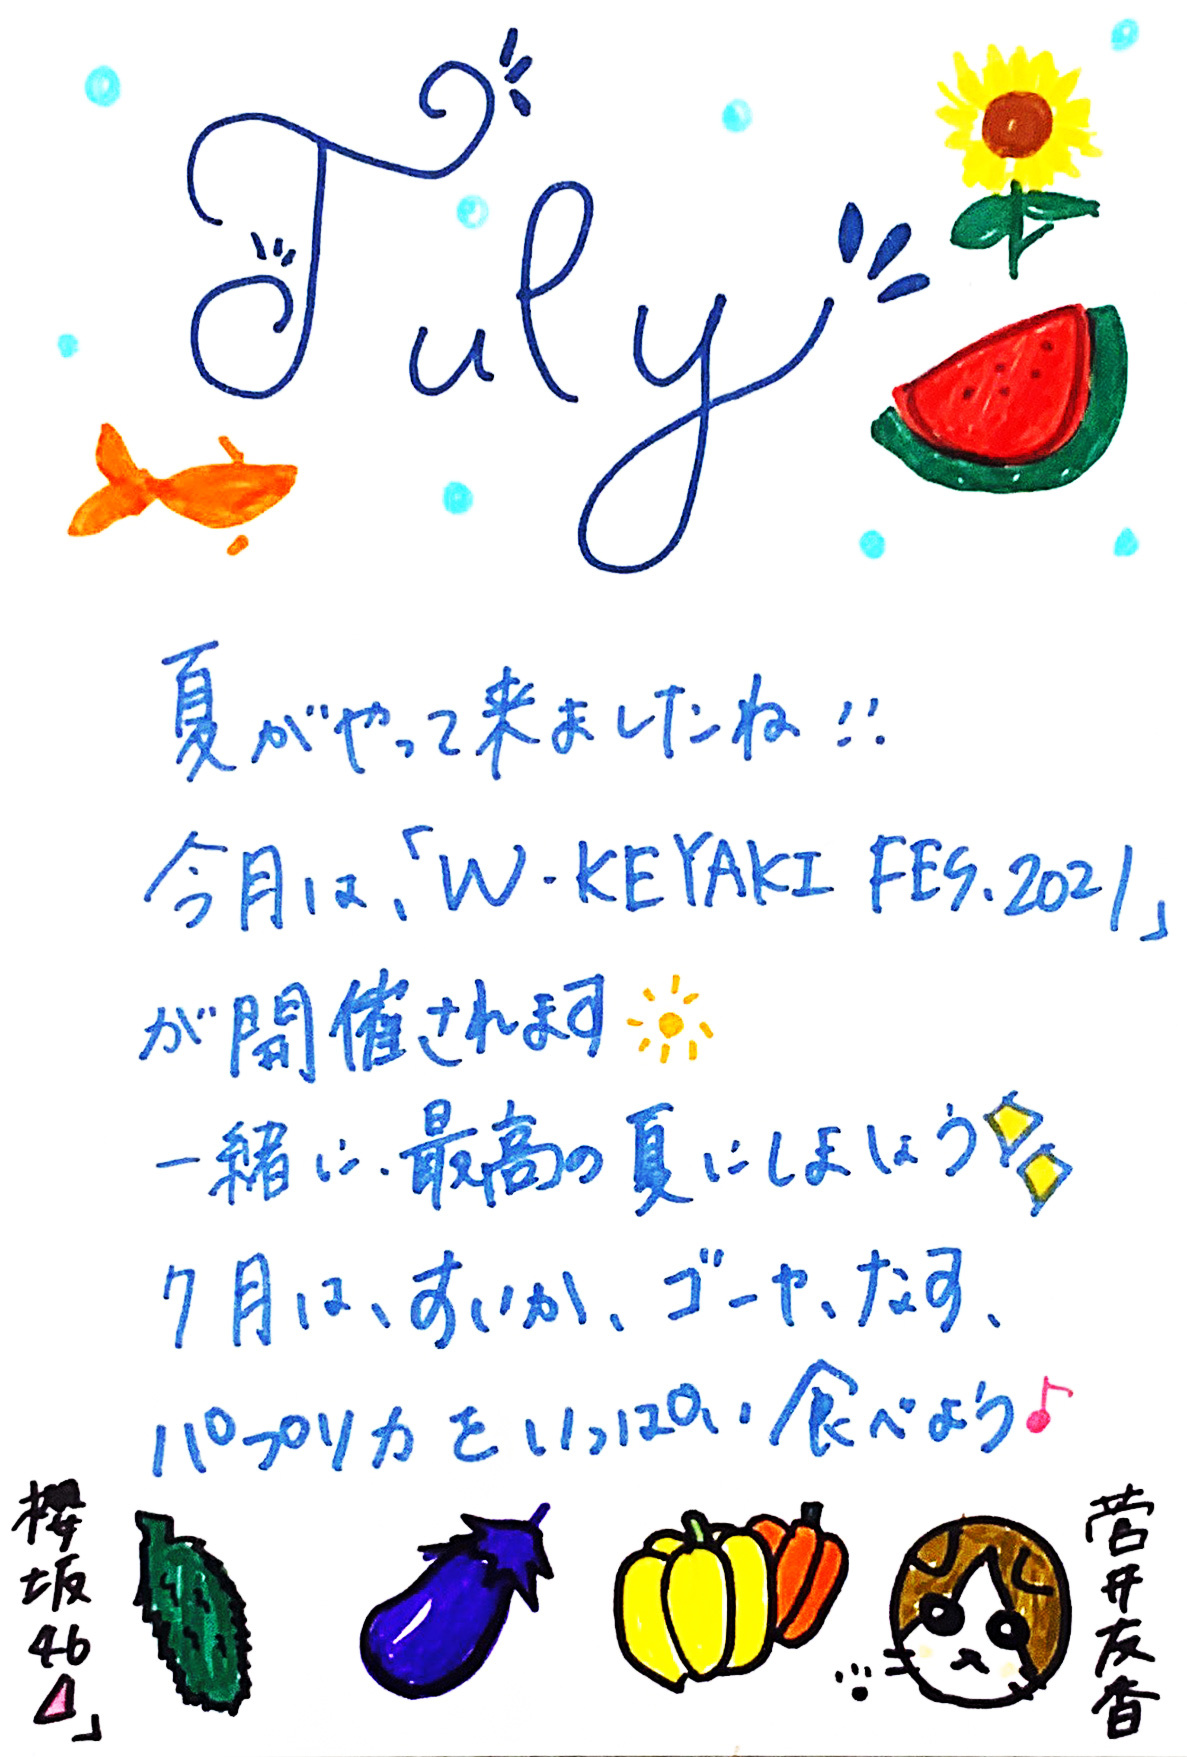 July
夏がやって来ましたね!!
今月は、「W-KEYAKI FES.2021」
が開催されます
一緒に最高の夏にしましょう
7月は、すいか、ゴーヤ、なす、
パプリカをいっぱい食べよう
櫻坂46
菅井友香